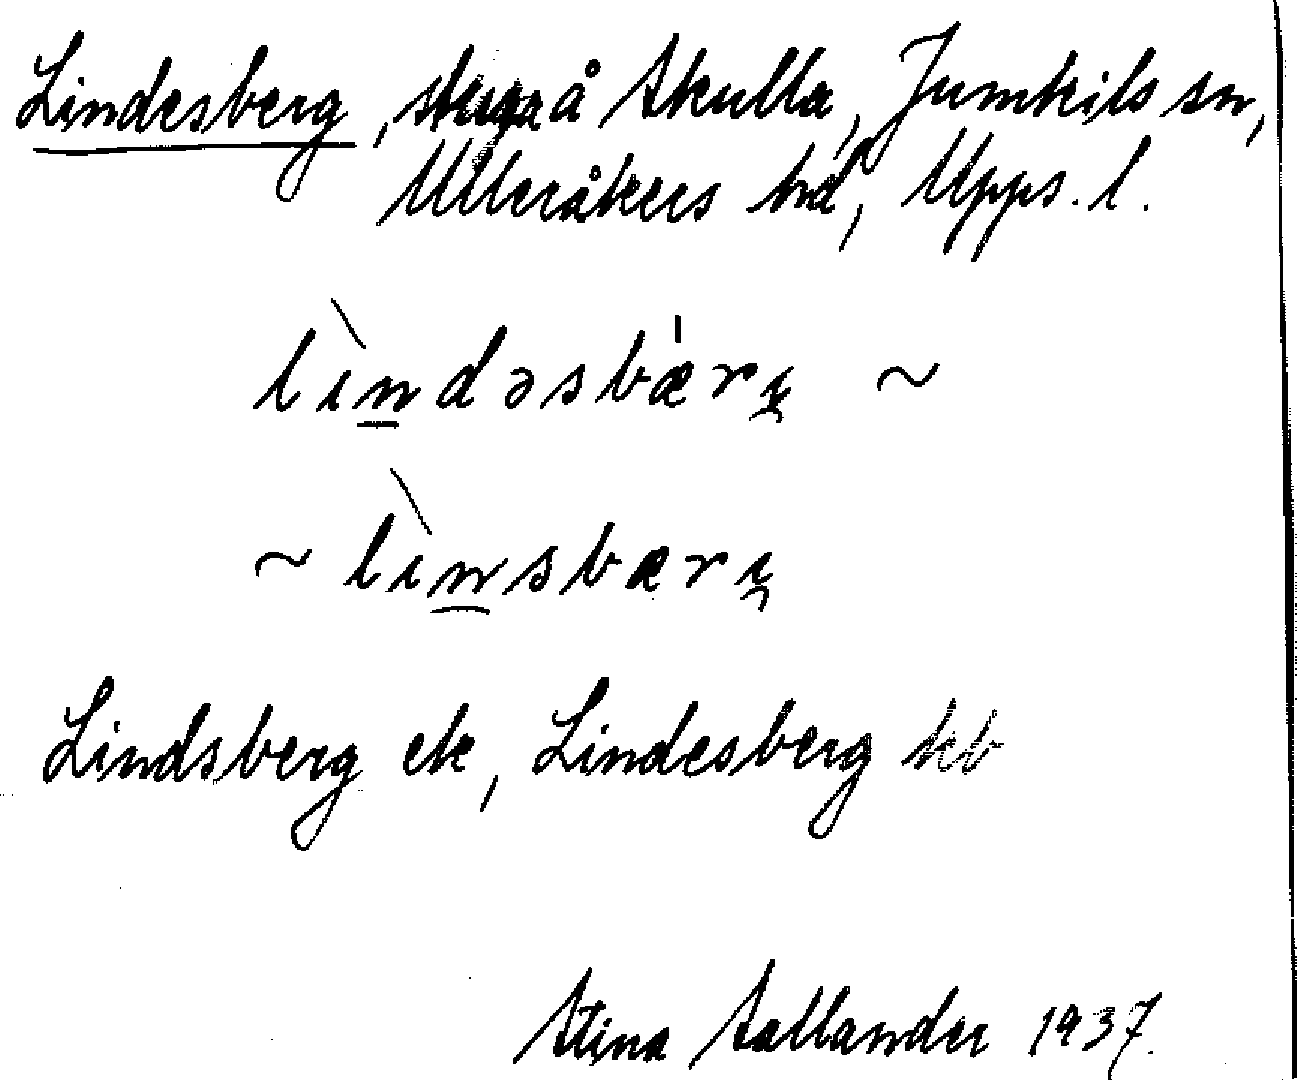 Lindesberg, stuga å Skulla, Jumkils sn,
Ulleråkers hd, Upps. l.
lìndəsbær ̓ ~
~ lìnsbær
Lindsberg ek, Lindesberg kb
Stina Sallander 1937.